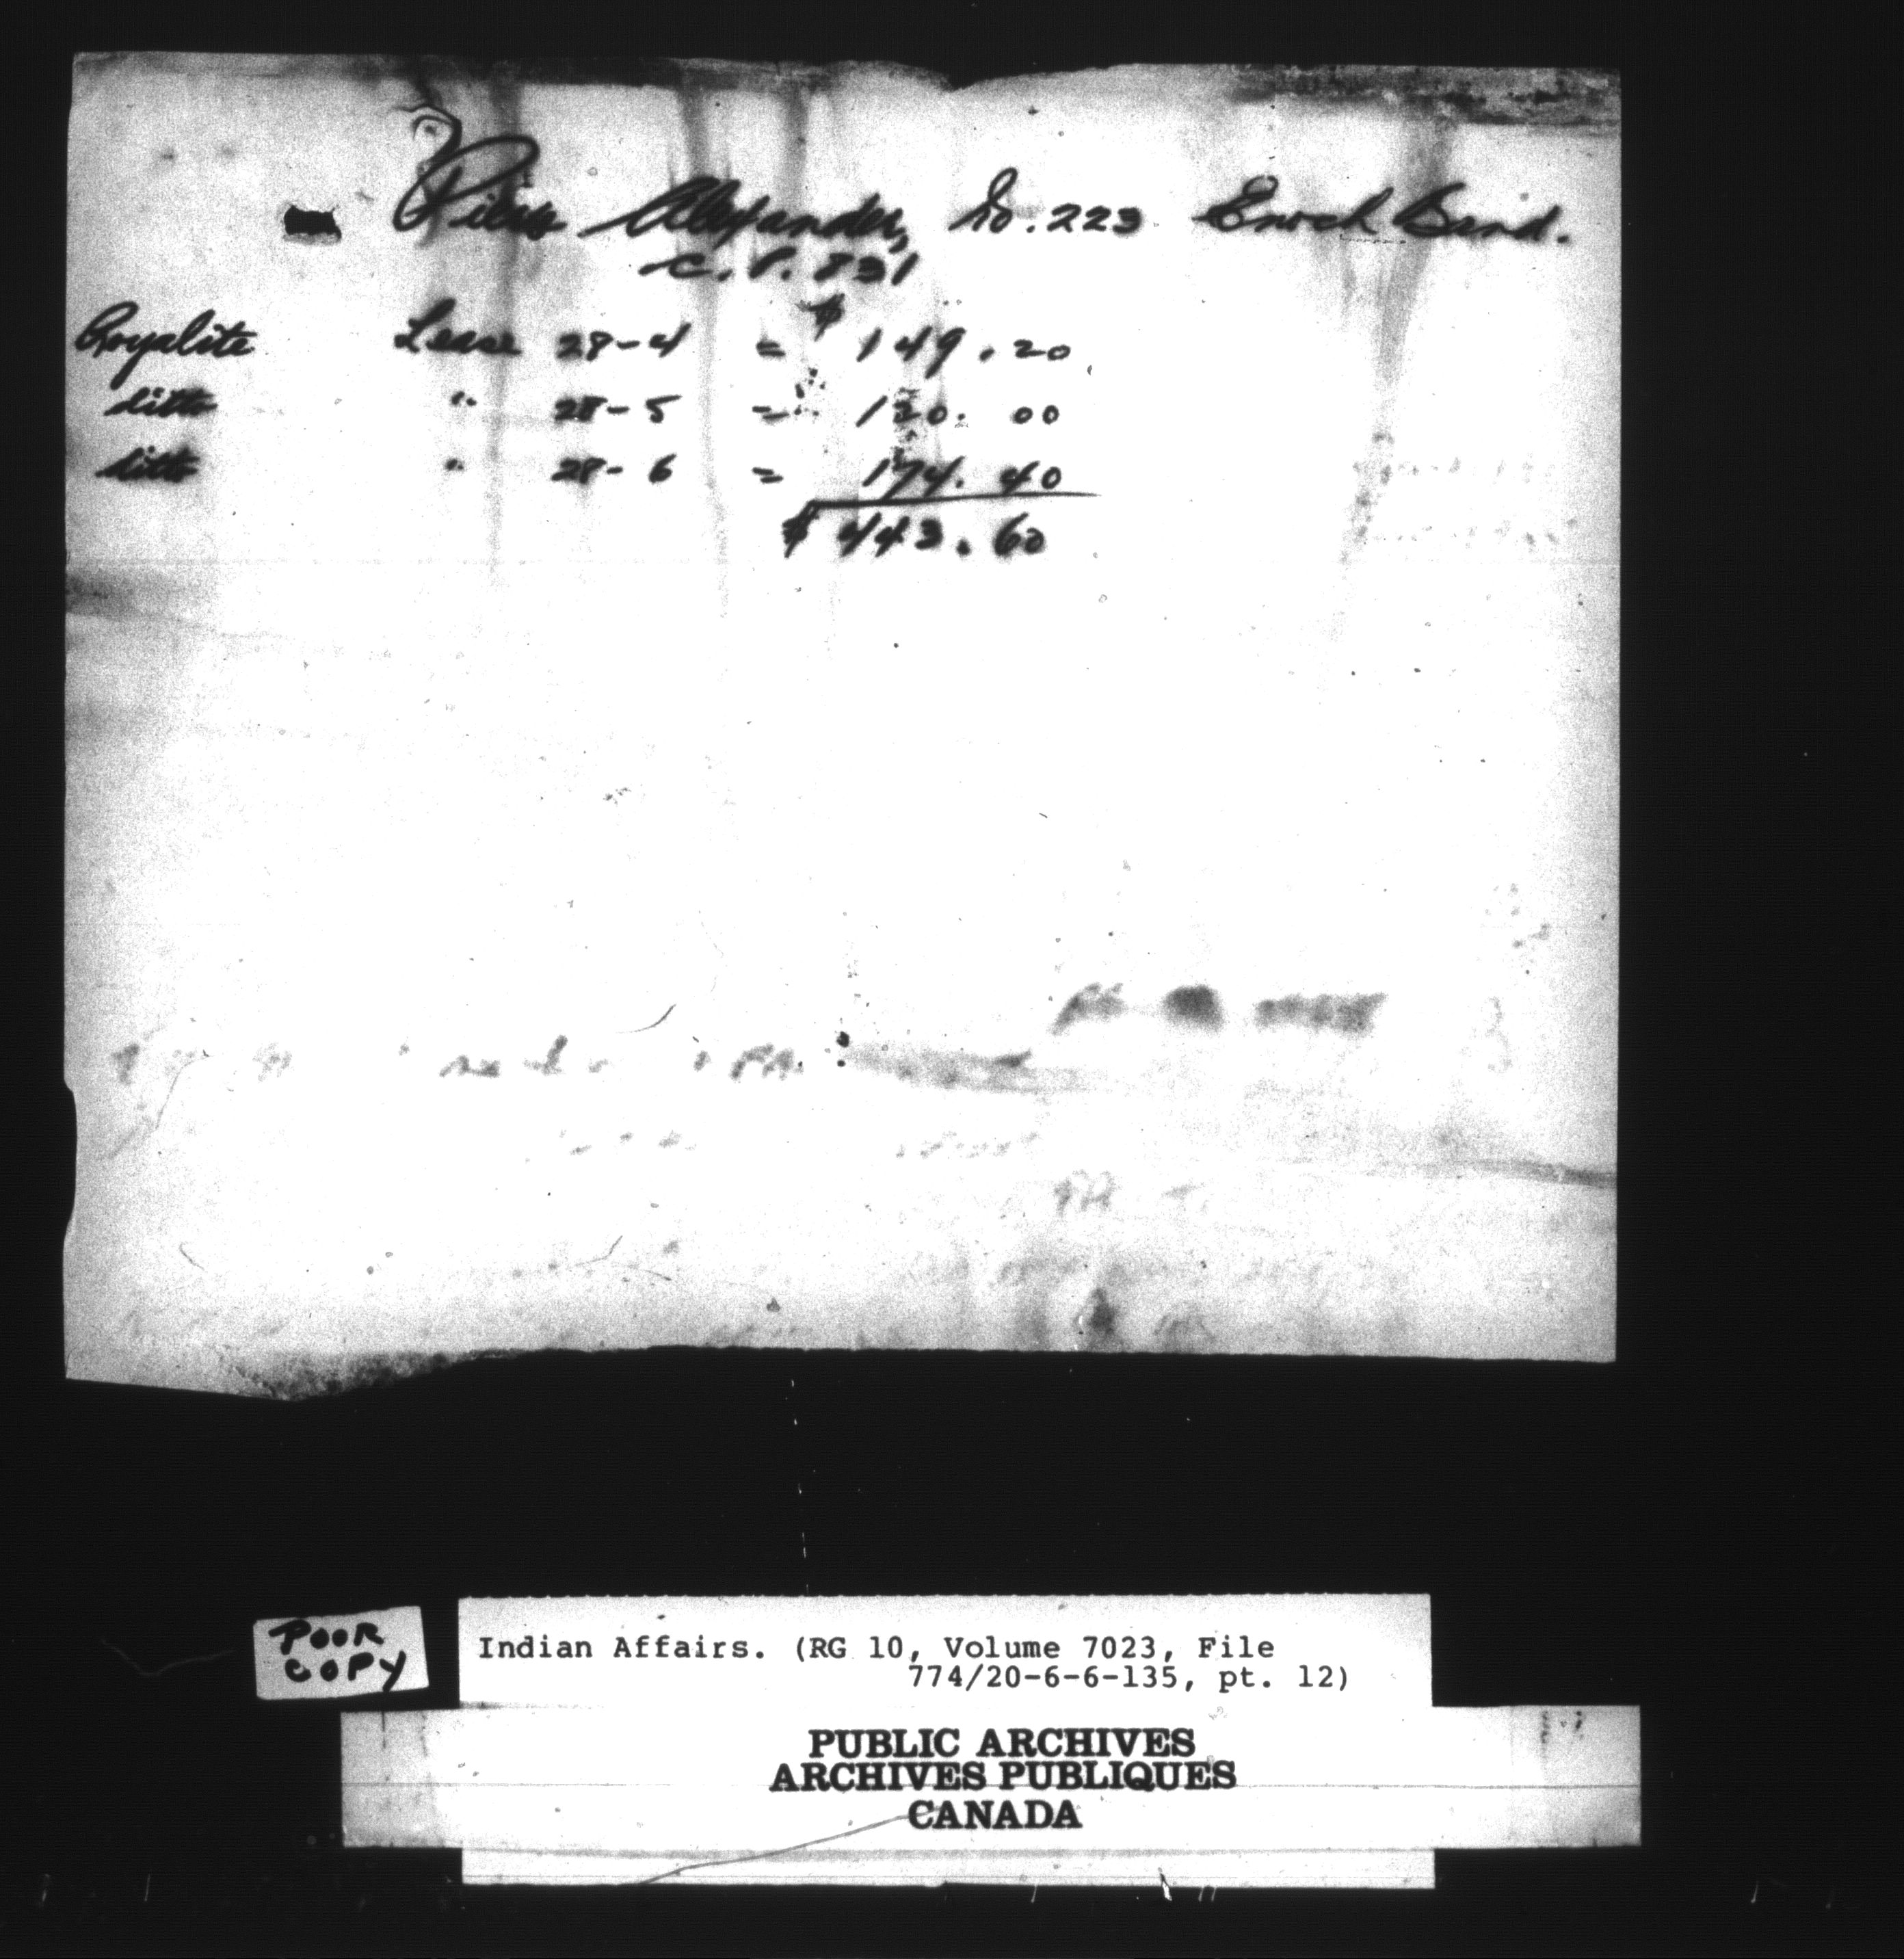 Alexander, No. 223 Enoch Band.
C.P. 831
$
Royalite Lease 28-4 = 149.20
ditto " 28-5 = 120.00
ditto " 28-6 = 174.40
$ 443.60
POOR
COPY
Indian Affairs. (RG 10, Volume 7023, File
774/20-6-6-135, pt. 12)
PUBLIC ARCHIVES
ARCHIVES PUBLIQUES
CANADA